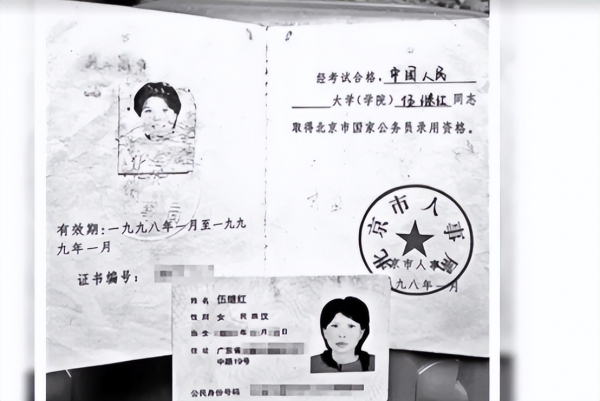 有效期:一九九八年一月至一九九
九年一月
证书编号:
经考试合格,中国人民
大学(学院)伍继红同志
取得北京市国家公务员录用资格。
北京市人事局
京市人事
九八年一月
姓名 伍继红
性别 女 民族汉
年 月 日
住址 广东省
中路19号
公民身份号码